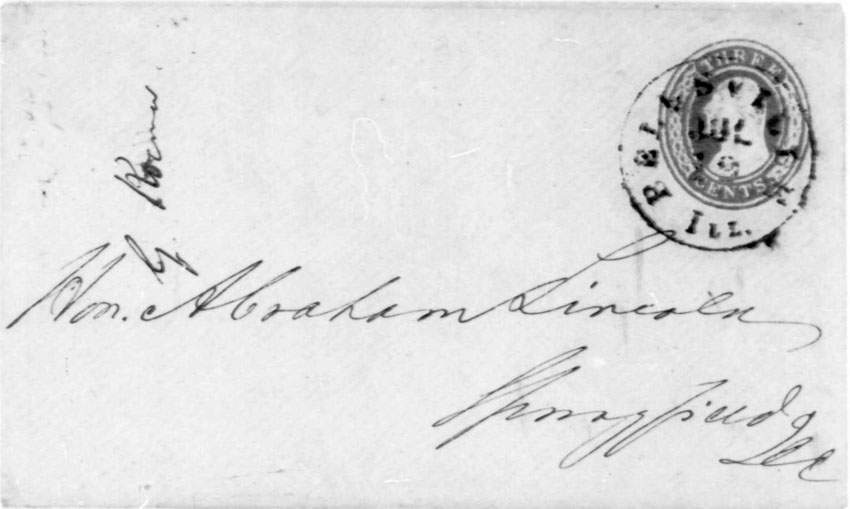 THREE
CENTS
BELLEVILLE
JUL
ILL.
G. Koerner
Hon. Abraham Lincoln
Springfield
Ill